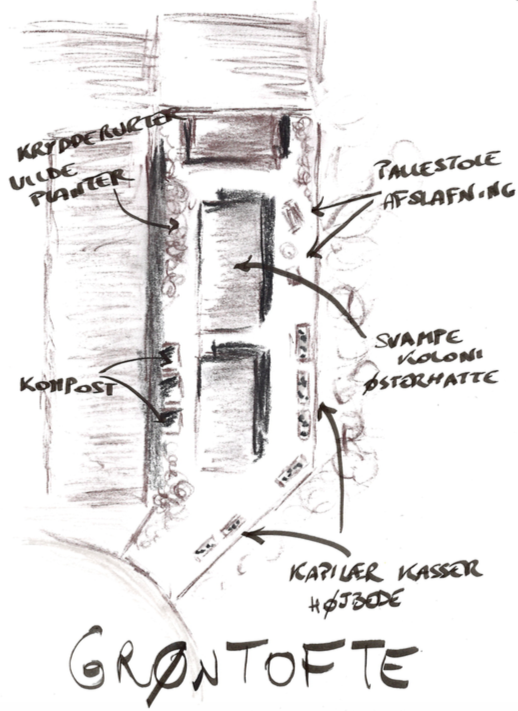 KRYDDERURTER
VILDE
PLANTER
PALLESTOLE
AFSLAFNING
SVAMPE
KOLONI
ØSTERHATTE
KOMPOST
KAPILÆR KASSER
HØJBEDE
GRØNTOFTE